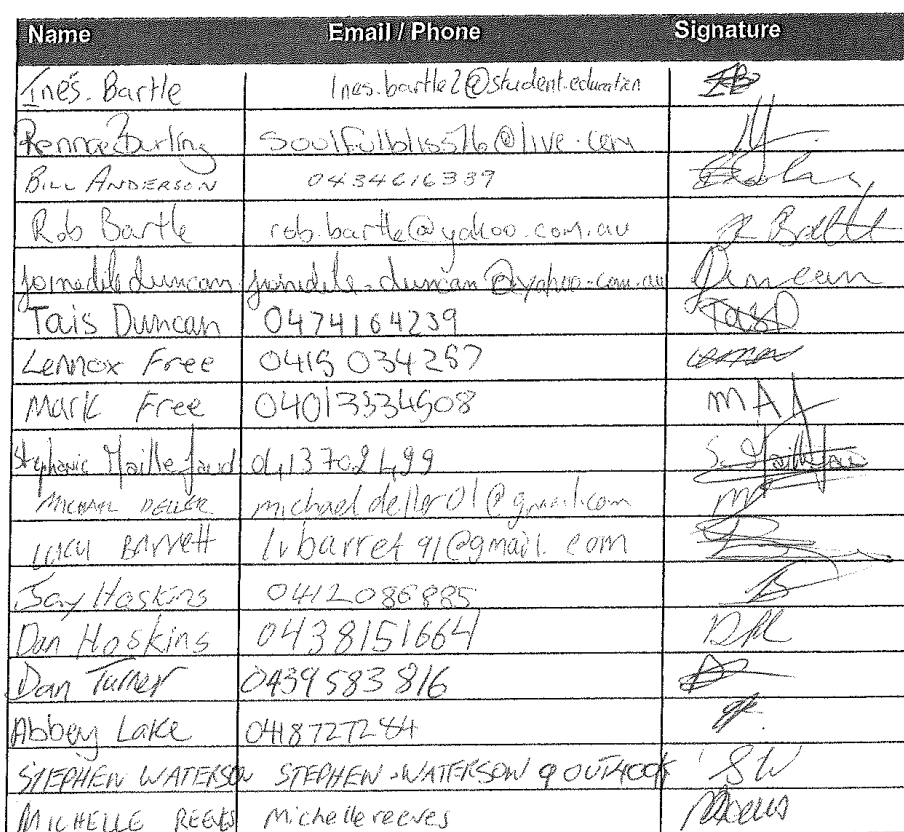 Name Email / Phone Signature
Inés. Bartle Ines.bartle2@student.education IB
Burling soulfulbliss76@live.com
BILL ANDERSON 0434616339
Rob Bartle rob.bartle@yahoo.com.au R Bartle
joinedile duncan joinedile-duncan@yahoo.com.au Duncan
Tais Duncan 0474164239 TaisD
Lennox Free 0415 034257
Mark Free 04013334508 MAF
Stephanie Maillefaud 0413702499 S. Maillefaud
MICHAEL DELLER michaeldeller01@gmail.com
LUCY BARRETT lvbarret91@gmail.com
Jay Hoskins 0412086885
Dan Hoskins 0438151664 DH
Dan Turner 0439583816
Abbey Lake 0418727284
STEPHEN WATERSON STEPHEN-WATERSON9OUTLOOK SW
MICHELLE REEVES michellereeves